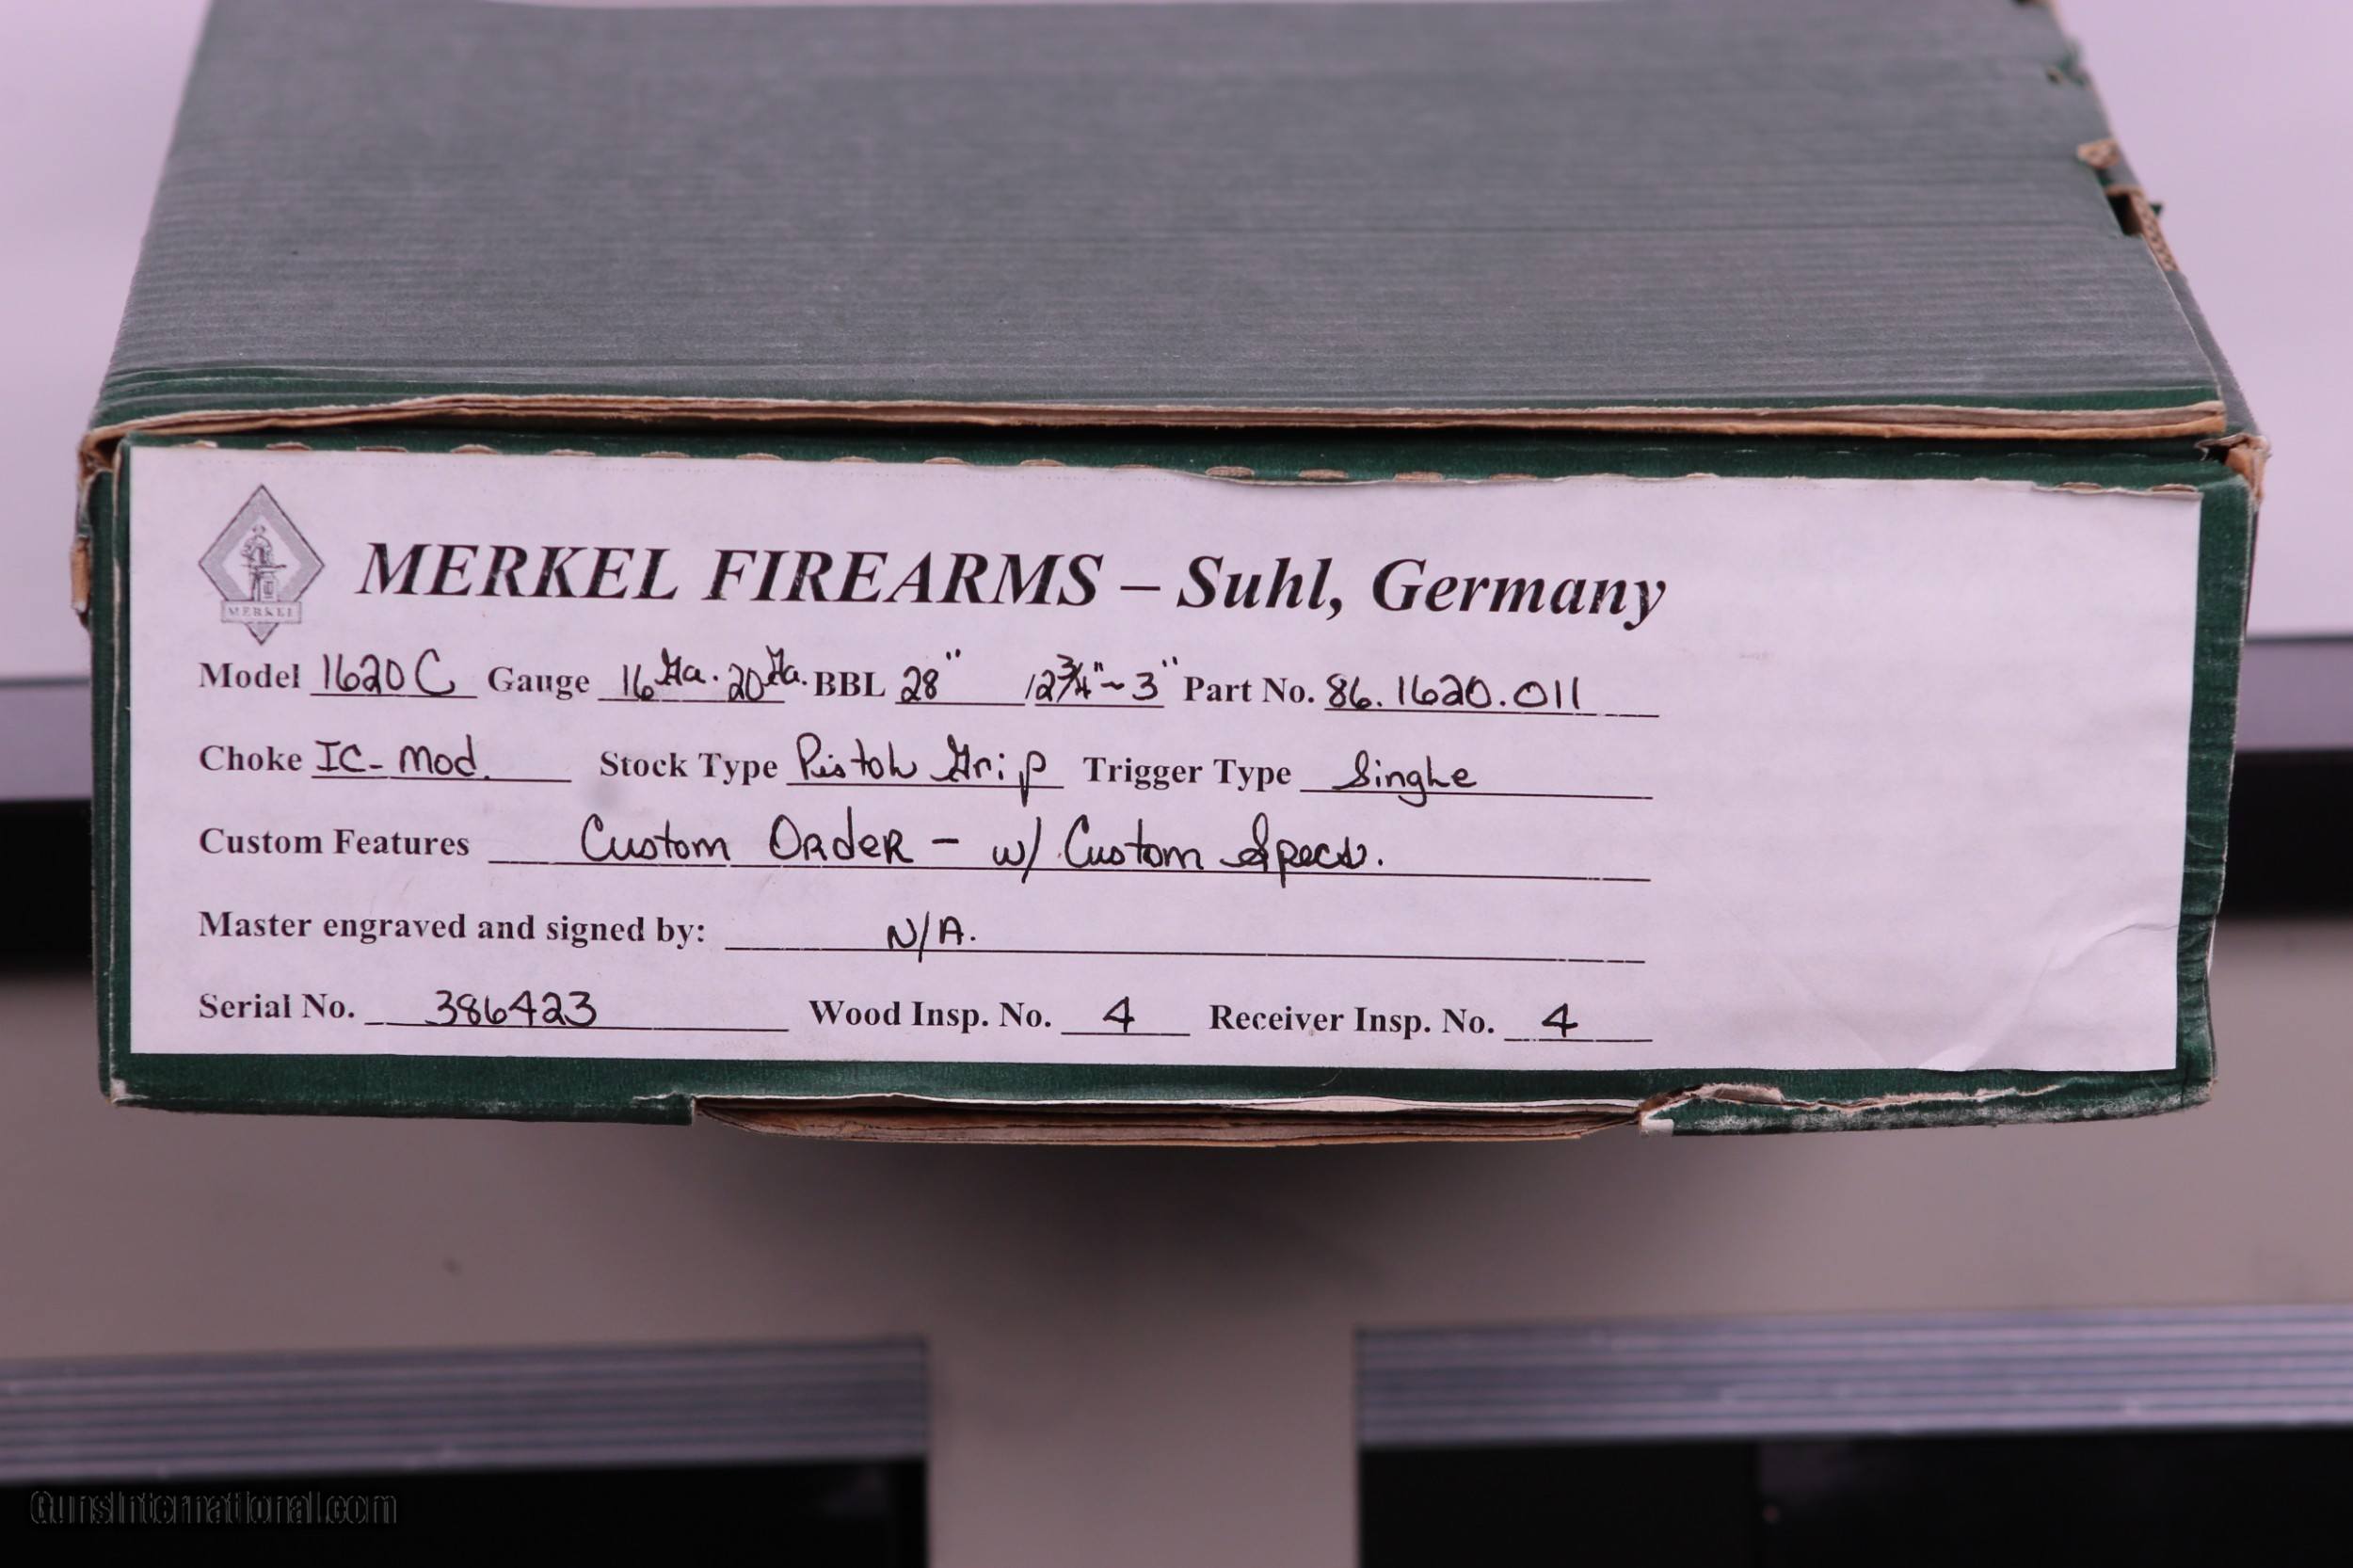 MERKEL
MERKEL FIREARMS – Suhl, Germany
Model 1620C Gauge 16 Ga. 20 Ga. BBL 28" / 2 3/4" ~ 3" Part No. 86.1620.011
Choke IC - Mod. Stock Type Pistol Grip Trigger Type Single
Custom Features Custom Order – w/ Custom Specs.
Master engraved and signed by: N/A.
Serial No. 386423 Wood Insp. No. 4 Receiver Insp. No. 4
GunsInternational.com